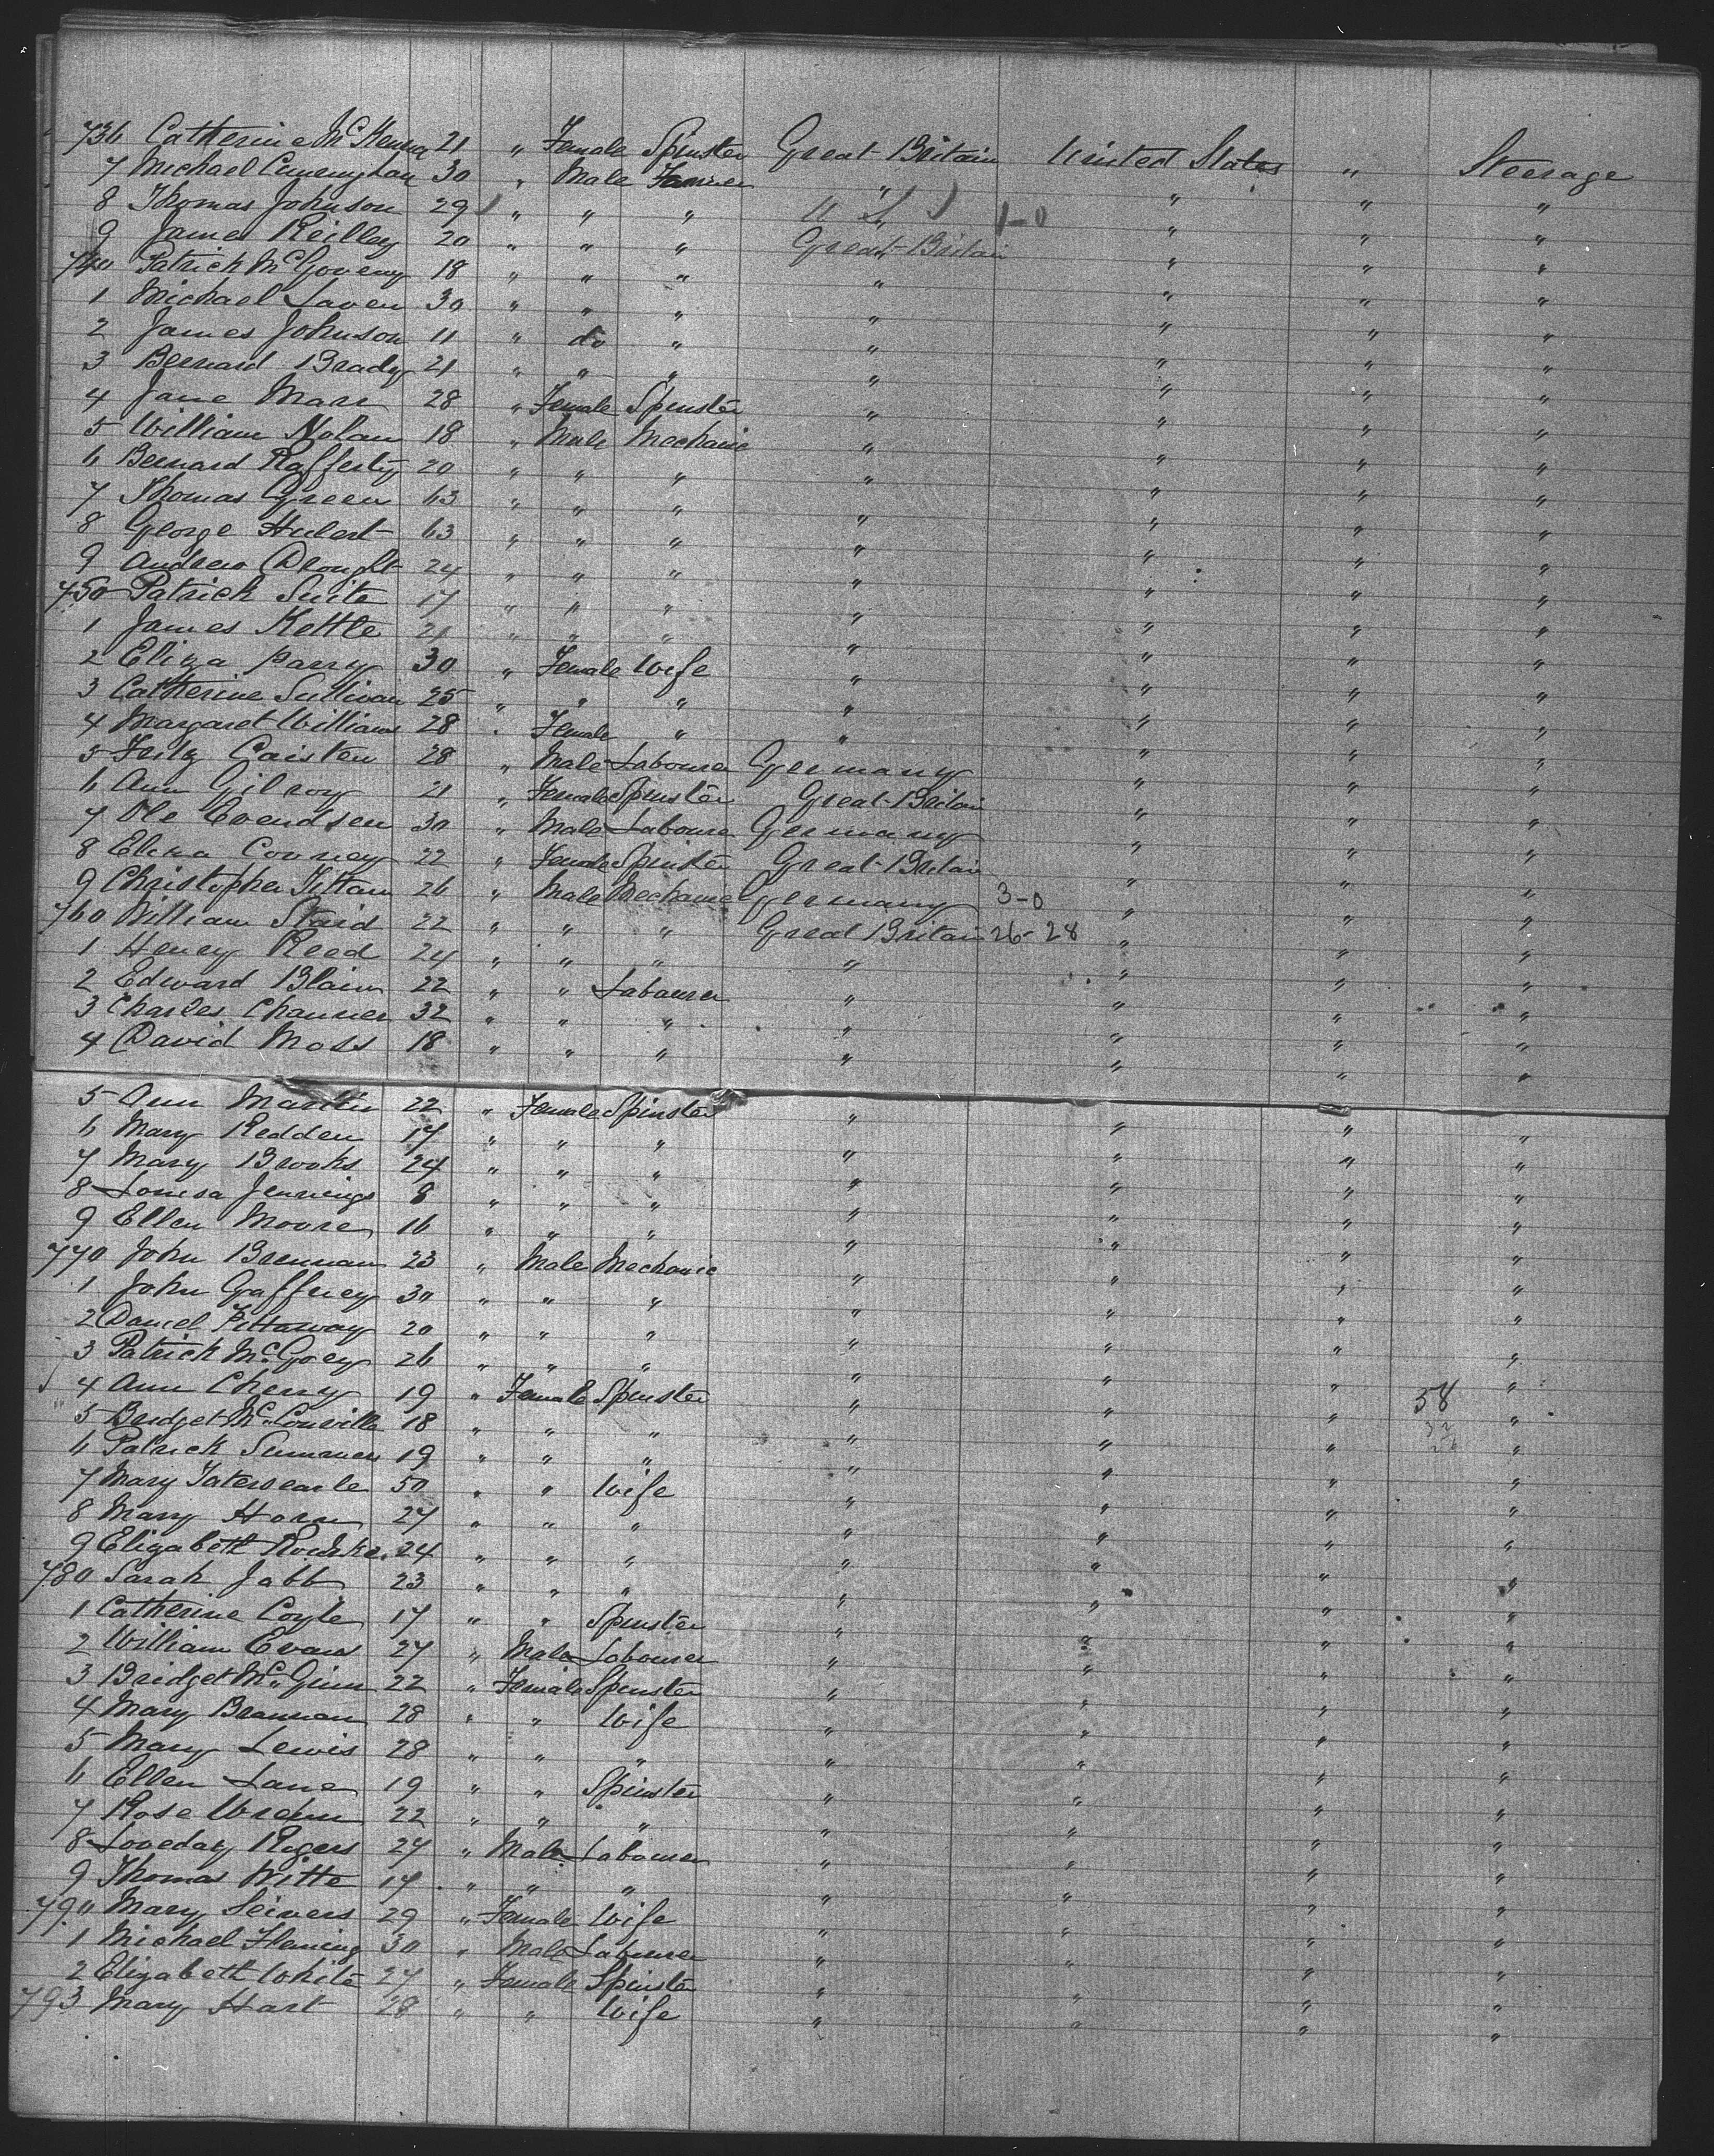 736 Catherine McKenna 21 " Female Spinster Great Britain United States " Steerage
7 Michael Cunningham 30 " Male Farmer " " " "
8 Thomas Johnson 29 " " " U S 1-0 " " "
9 James Reilley 20 " " " Great Britain " " "
740 Patrick McGoveny 18 " " " " " " "
1 Michael Laven 30 " " " " " " "
2 James Johnson 11 " do " " " " "
3 Bernard Brady 21 " " " " " " "
4 Jane Marr 28 " Female Spinster " " " "
5 William Nolan 18 " Male Mechanic " " " "
6 Bernard Rafferty 20 " " " " " " "
7 Thomas Green 63 " " " " " " "
8 George Hulert 63 " " " " " " "
9 Andrew Drought 24 " " " " " " "
750 Patrick Suite 17 " " " " " " "
1 James Kettle 21 " " " " " " "
2 Eliza Parry 30 " Female Wife " " " "
3 Catherine Sullivan 25 " " " " " " "
4 Margaret Williams 28 " Female " " " " "
5 Fritz Caisten 28 " Male Labourer Germany " " "
6 Ann Gilroy 21 " Female Spinster Great Britain " " "
7 Ole Evendsen 30 " Male Labourer Germany " " "
8 Eliza Cooney 22 " Female Spinster Great Britain " " "
9 Christopher Tittan 26 " Male Mechanic Germany 3-0 " " "
760 William Staid 22 " " " Great Britain 26-28 " " "
1 Henry Reed 24 " " " " " " "
2 Edward Blain 22 " " Labourer " " " "
3 Charles Channer 32 " " " " " " "
4 David Moss 18 " " " " " " "
5 Ann Martin 22 " Female Spinster " " " "
6 Mary Redden 17 " " " " " " "
7 Mary Brooks 24 " " " " " " "
8 Louisa Jennings 8 " " " " " " "
9 Ellen Moore 16 " " " " " " "
770 John Brennan 23 " Male Mechanic " " " "
1 John Gaffney 30 " " " " " " "
2 Daniel Pittaway 20 " " " " " " "
3 Patrick McGoey 26 " " " " " " "
4 Ann Cherry 19 " Female Spinster " " " 58 "
5 Bridget McConville 18 " " " " " " "
6 Patrick Summers 19 " " " " " " "
7 Mary 50 " " Wife " " " "
8 Mary Horn 27 " " " " " " "
9 Elizabeth 24 " " " " " " "
780 Sarah Jabb 23 " " " " " " "
1 Catherine Coyle 17 " " Spinster " " " "
2 William Evans 27 " Male Labourer " " " "
3 Bridget McGinn 22 " Female Spinster " " " "
4 Mary Brannan 28 " " Wife " " " "
5 Mary Lewis 28 " " " " " " "
6 Ellen Lane 19 " " Spinster " " " "
7 Rose Wrenn 22 " " " " " " "
8 Loveday Rogers 27 " Male Labourer " " " "
9 Thomas Witte 17 " " " " " " "
790 Mary Seivers 29 " Female Wife " " " "
1 Michael Fleming 30 " Male Labourer " " " "
2 Elizabeth White 27 " Female Spinster " " " "
793 Mary Hart 28 " " Wife " " " "